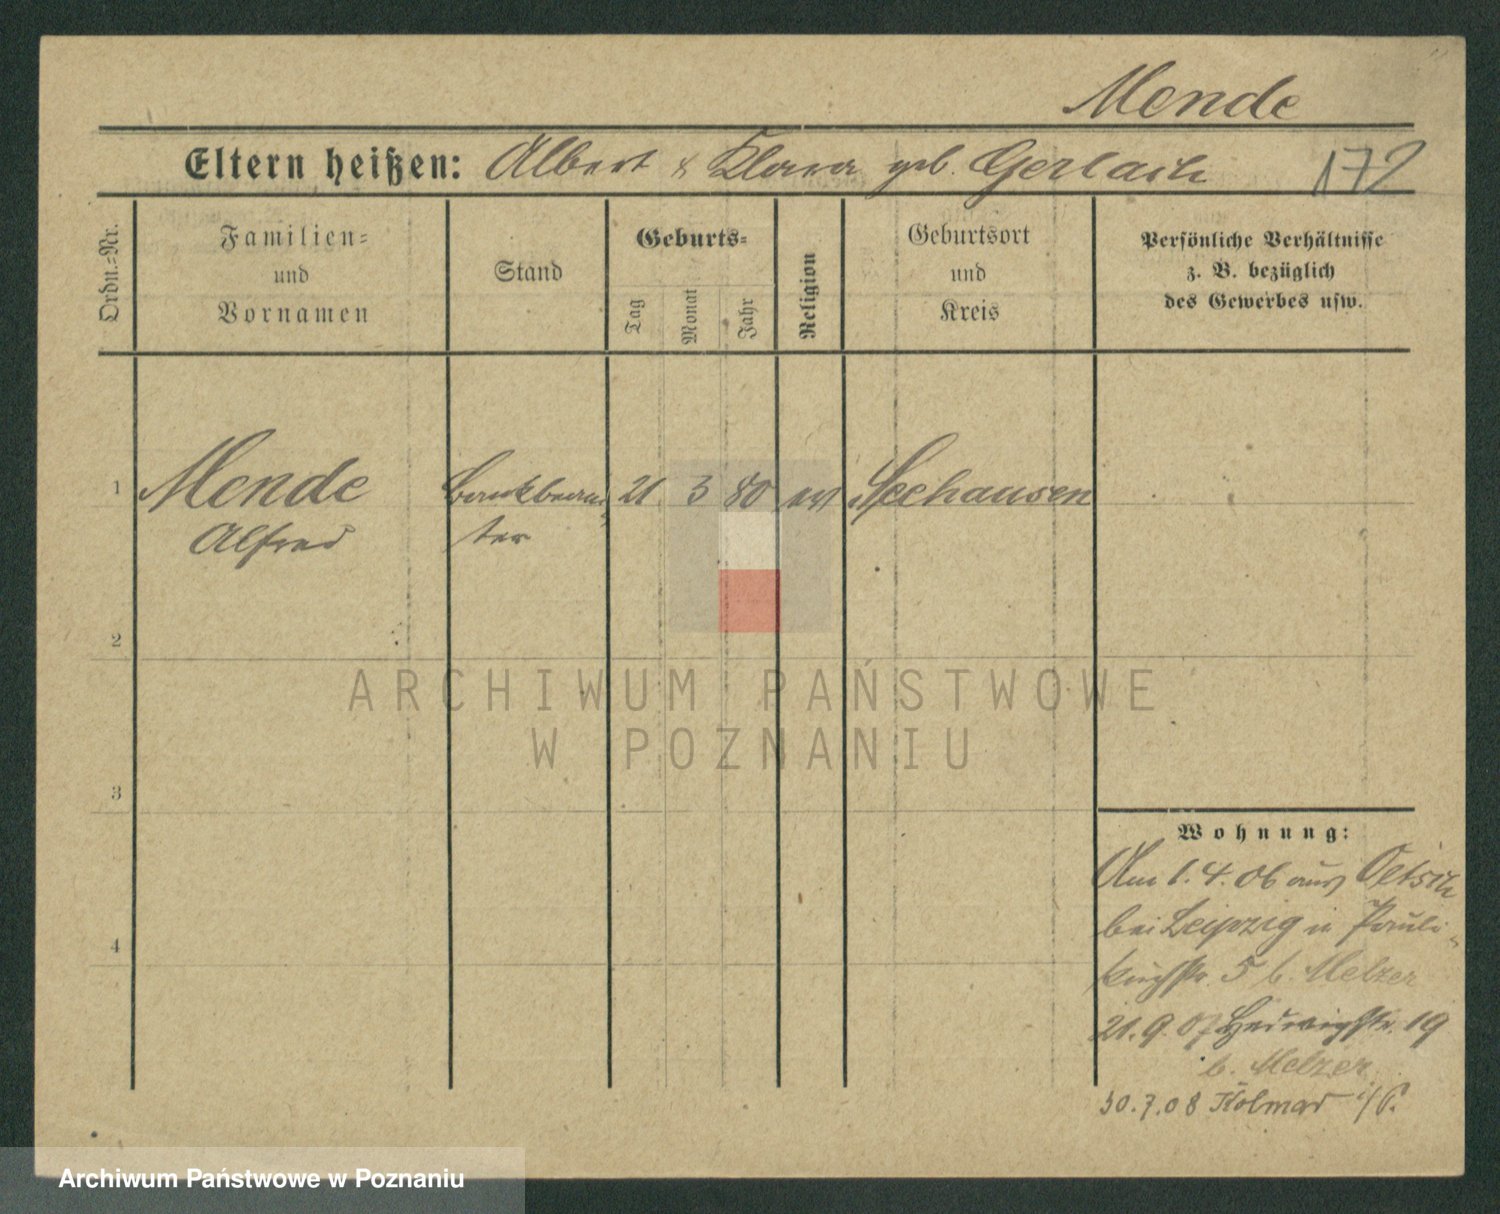 Mende
Eltern heißen: Albert & Klara geb. Gerlach
172
Ordn.-Nr.
Familien-
und
Vornamen
Stand
Geburts-
Tag
Monat
Jahr
Religion
Geburtsort
und
Kreis
Persönliche Verhältnisse
z. B. bezüglich
des Gewerbes usw.
1 Mende Bankbeam- 21 3 80 ev Seehausen
Alfred ter
2
3
4
ARCHIWUM PAŃSTWOWE
W POZNANIU
Wohnung:
Am 1.4.06 aus Oetsch
bei Leipzig n Pauli-
kirchstr. 5 b. Melzer
21.9.07 Hedwigstr. 19
b. Melzer
30.7.08 Kolmar i/P.
Archiwum Państwowe w Poznaniu